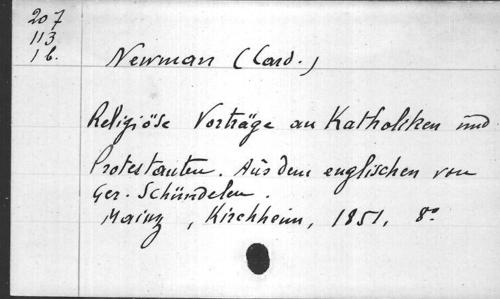 207
113
1 b.
Newman (Card.)
Religiöse Vorträge an Katholiken und
Protestanten. Aus dem englischen von
Ger. Schündelen.
Mainz, Kirchheim, 1851, 8°.